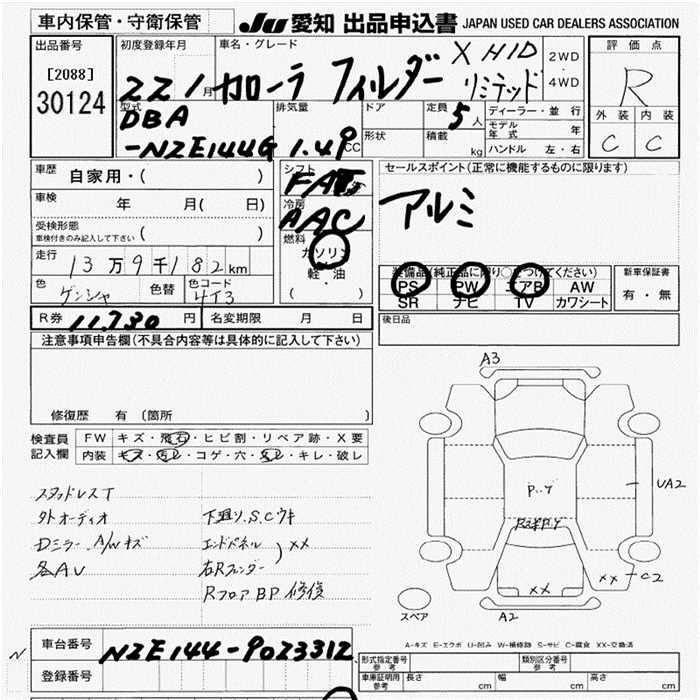 車内保管・守衛保管
JU 愛知 出品申込書 JAPAN USED CAR DEALERS ASSOCIATION
出品番号
[2088]
30124
初度登録年月
22 1 月
車名・グレード
カローラ フィルダー
X HID
リミテッド
2WD
4WD
評価点
R
外装 内装
C C
型式
DBA
-NZE144G
排気量
1.49 CC
ドア
形状
定員
5 人
積載
kg
ディーラー・並行
モデル年式 年
ハンドル 左・右
車歴
自家用・( )
車検
年 月( 日)
受検形態
車検付きのみ記入して下さい ( )
走行
13万9千182km
色
ゲンシャ
色替
色コード
4T3
シフト
FAT
冷房
AAC
燃料
ガソリン
・
軽・油
( )
セールスポイント(正常に機能するものに限ります)
アルミ
装備品(純正品に限り○をつけてください)
PS PW エアB AW
SR ナビ TV カワシート
新車保証書
有・無
R券 11,730 円
名変期限 月 日
後日品
注意事項申告欄(不具合内容等は具体的に記入して下さい)
修復歴 有 (箇所
検査員
記入欄
FW キズ・飛石・ヒビ割・リペア跡・X要
内装 キズ・汚レ・コゲ・穴・スレ・キレ・破レ
スタッドレスT
外オーディオ
Dミラー、A/Wキズ
各AU
下廻リ、S.Cウキ
エンドパネル
右Rフェンダー
) ××
RフロアBP修復
A3
UA2
××
××-C2
A2
スペア
A-キズ E-エクボ U-凹み W-補修跡 S-サビ C-腐食 XX-交換済
N
車台番号
NZE144-9023312
登録番号
形式指定番号
参考
類別区分番号
参考
車庫証明用
参考
長さ cm
幅 cm
高さ cm